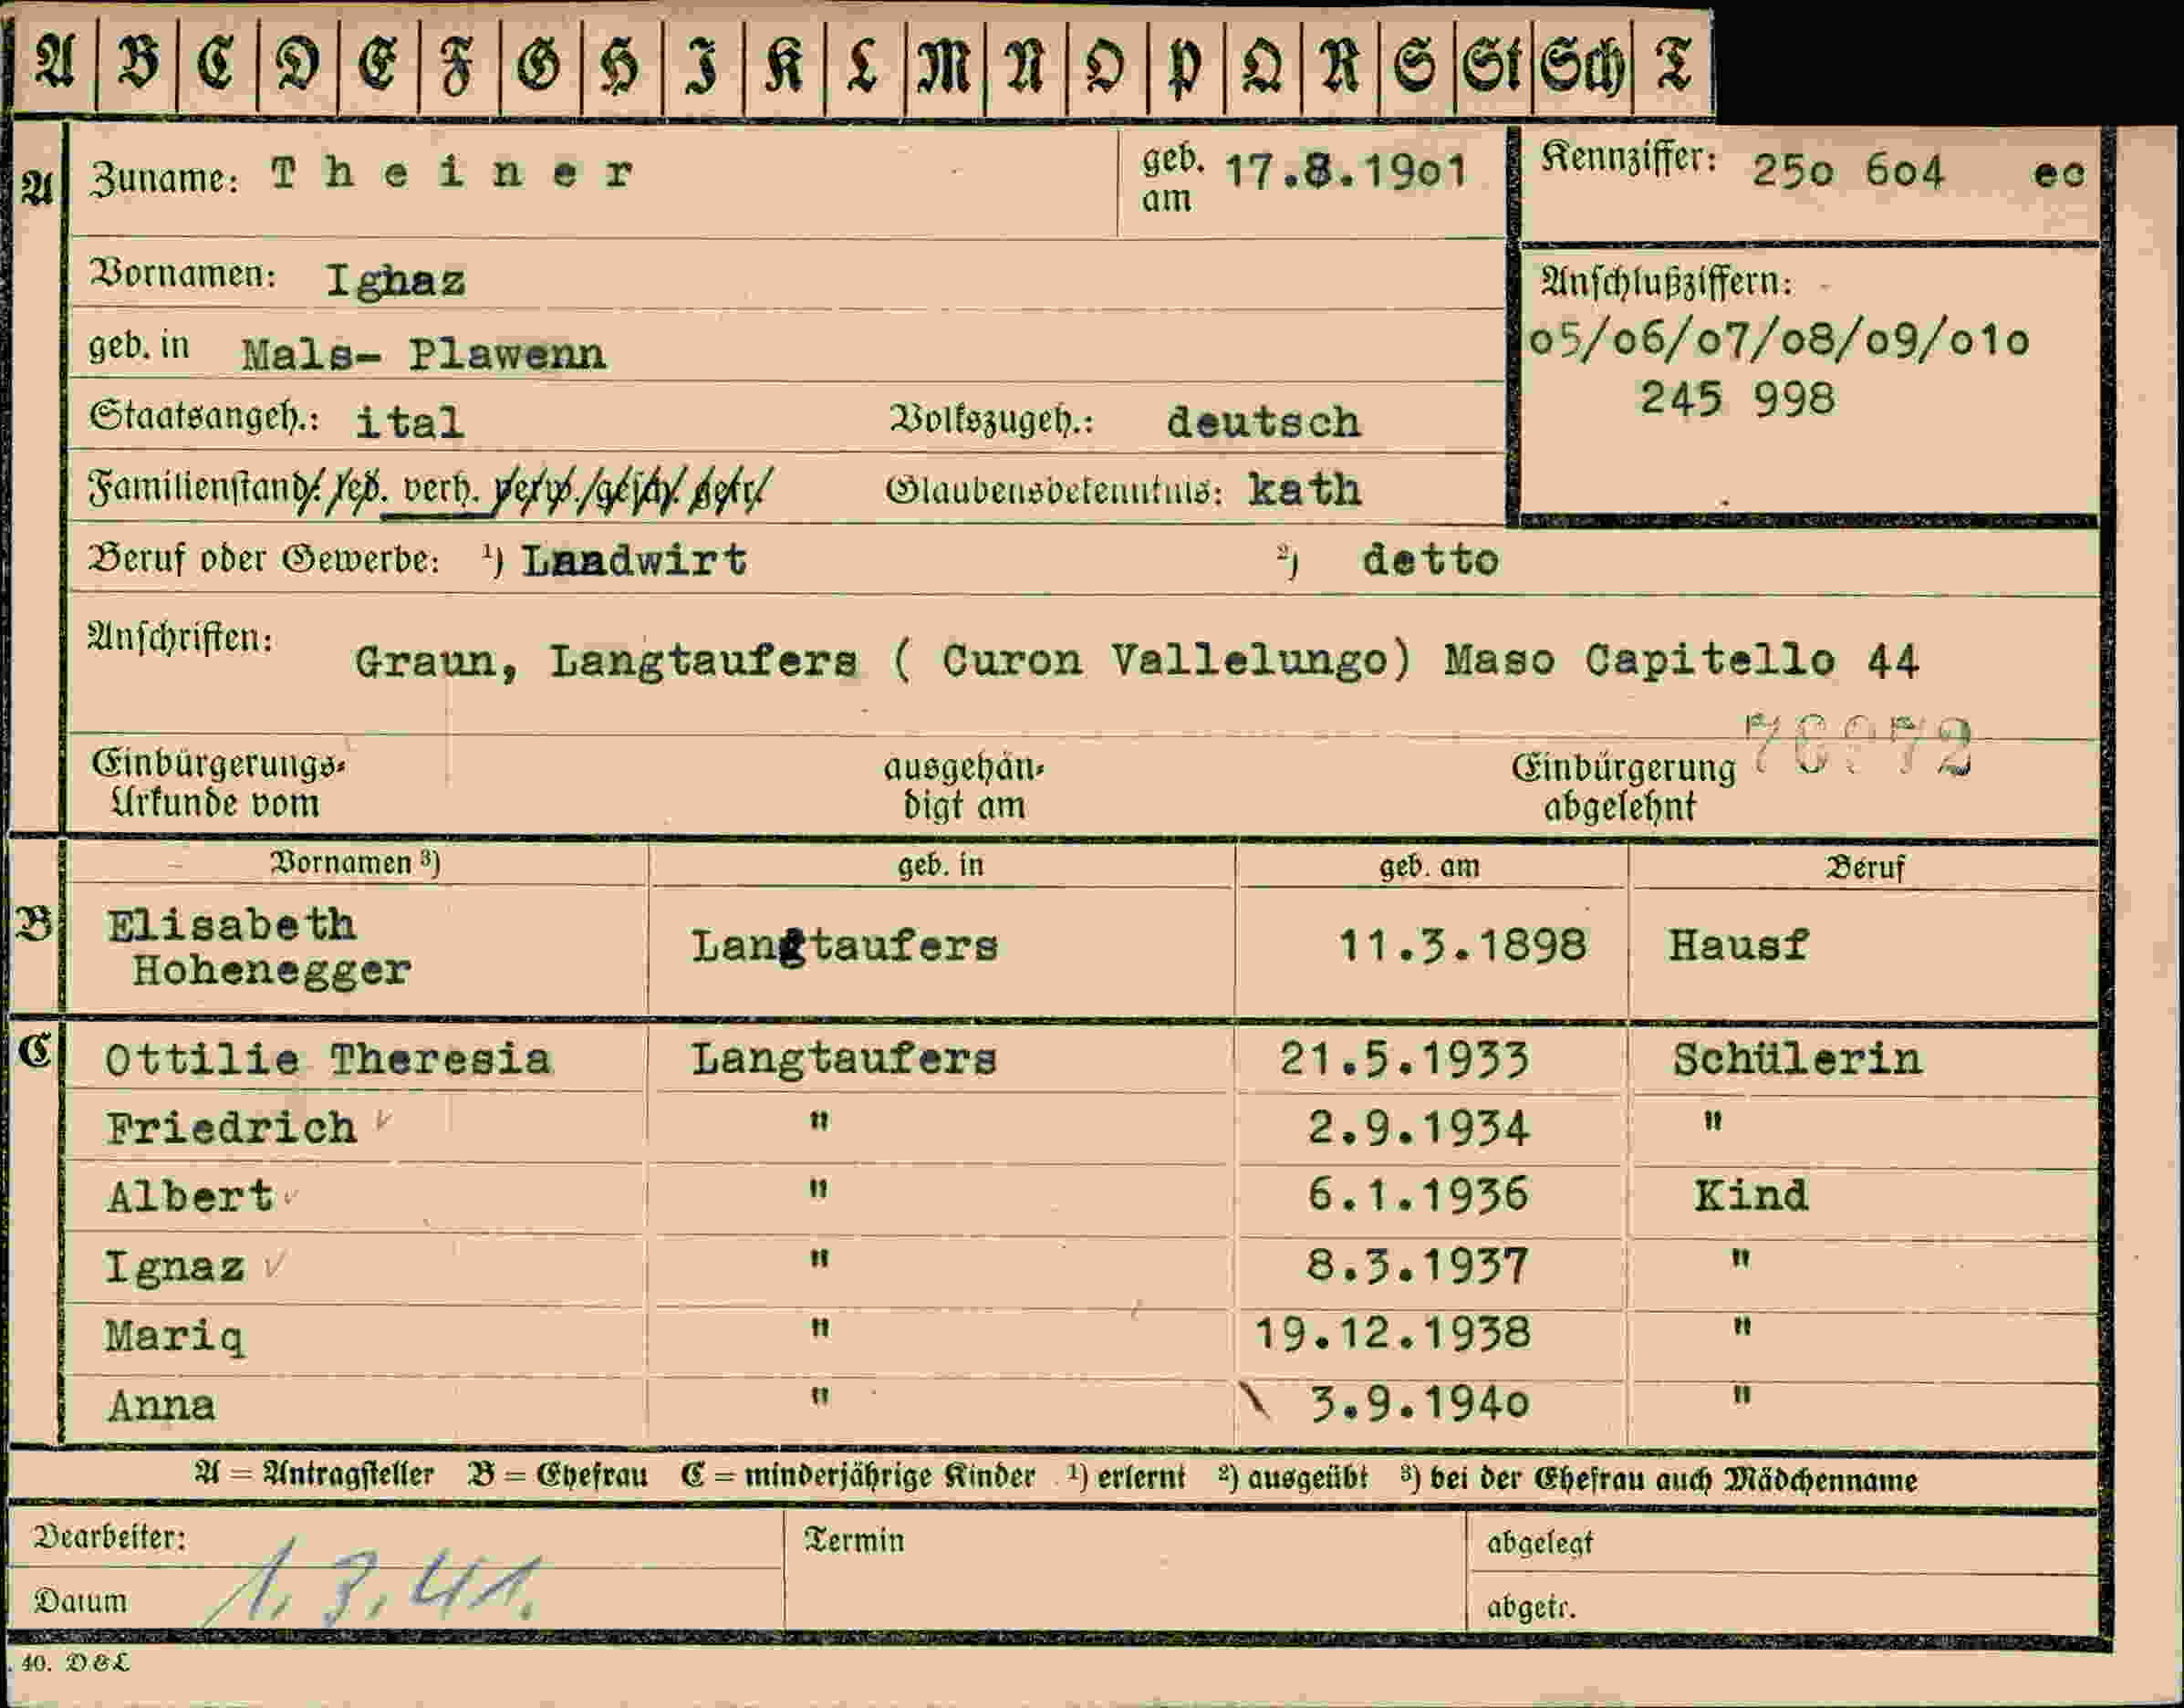 A B C D E F G H I K L M N O P Q R S St Sch T
A Zuname: Theiner geb. am 17.8.1901 Kennziffer: 250 604 eo
Vornamen: Ighaz Anschlußziffern:
geb. in Mals- Plawenn 05/06/07/08/09/010
Staatsangeh.: ital Volkszugeh.: deutsch 245 998
Familienstand: led. verh. verw. gesch. getr. Glaubensbekenntnis: kath
Beruf oder Gewerbe: ¹) Laadwirt ²) detto
Anschriften: Graun, Langtaufers ( Curon Vallelungo) Maso Capitello 44
Einbürgerungs- ausgehän- Einbürgerung
Urkunde vom digt am abgelehnt
Vornamen ³) geb. in geb. am Beruf
B Elisabeth Langtaufers 11.3.1898 Hausf
Hohenegger
C Ottilie Theresia Langtaufers 21.5.1933 Schülerin
Friedrich " 2.9.1934 "
Albert " 6.1.1936 Kind
Ignaz " 8.3.1937 "
Mariq " 19.12.1938 "
Anna " 3.9.1940 "
A = Antragsteller B = Ehefrau C = minderjährige Kinder ¹) erlernt ²) ausgeübt ³) bei der Ehefrau auch Mädchenname
Bearbeiter: Termin abgelegt
Datum 1.3.41. abgetr.
40. D&L